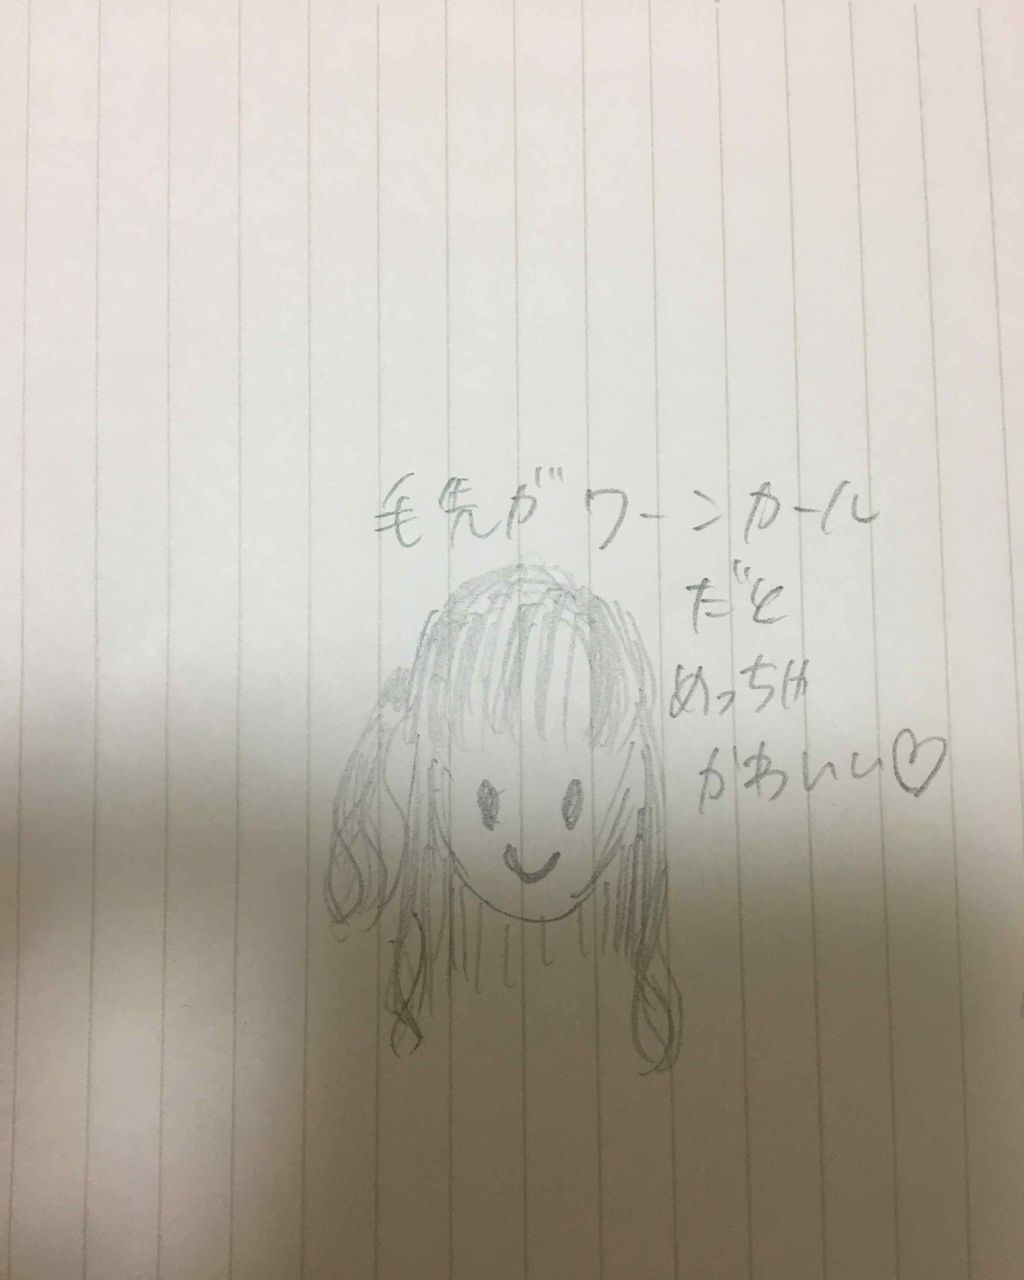 毛先がワーンカール
だと
めっちゃ
かわいい♡